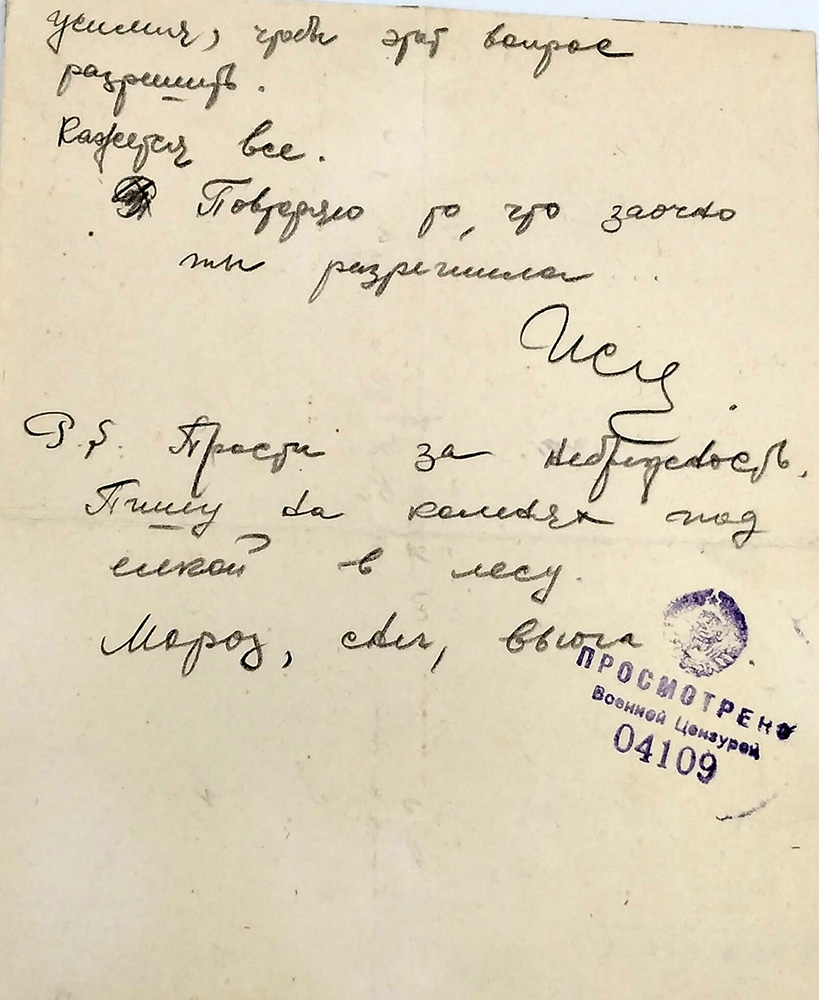 усилия, чтобы этот вопрос
разрешить.
Кажется все.
Повторяю то, что заочно
ты разрешила...
P.S. Прости за небрежность.
Пишу на коленях под
елкой в лесу.
Мороз, снег, вьюга.
ПРОСМОТРЕНО
Военной Цензурой
04109